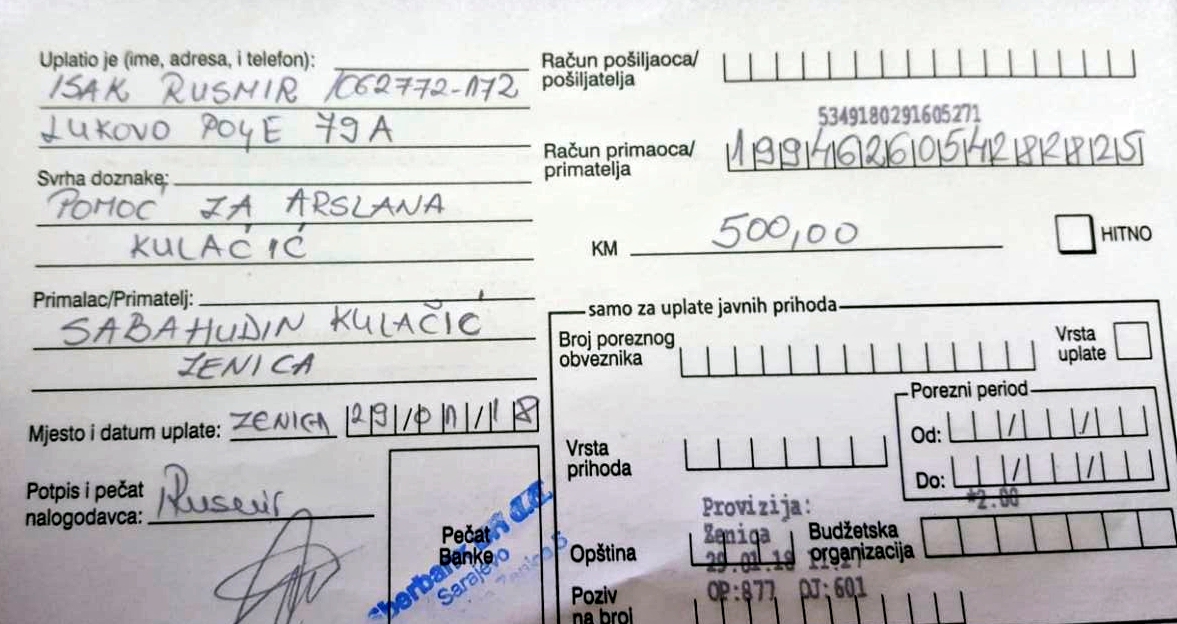 Uplatio je (ime, adresa, i telefon):
ISAK RUSMIR /062772-172
LUKOVO POLJE 79A
Svrha doznake:
POMOĆ ZA ARSLANA
KULAČIĆ
Primalac/Primatelj:
SABAHUDIN KULAČIĆ
ZENICA
Mjesto i datum uplate: ZENICA 29/01/18
Potpis i pečat
nalogodavca:
Pečat
Banke
Sarajevo
Zenica
Račun pošiljaoca/
pošiljatelja
5349180291605271
Račun primaoca/
primatelja
1994626054282825
KM 500,00
HITNO
samo za uplate javnih prihoda
Broj poreznog
obveznika
Vrsta
uplate
Porezni period
Od: / /
Do: / /
Vrsta
prihoda
*2.00
Provizija:
Zenica
29.01.18
Opština
Budžetska
organizacija
OP:877 DJ:601
Poziv
na broj